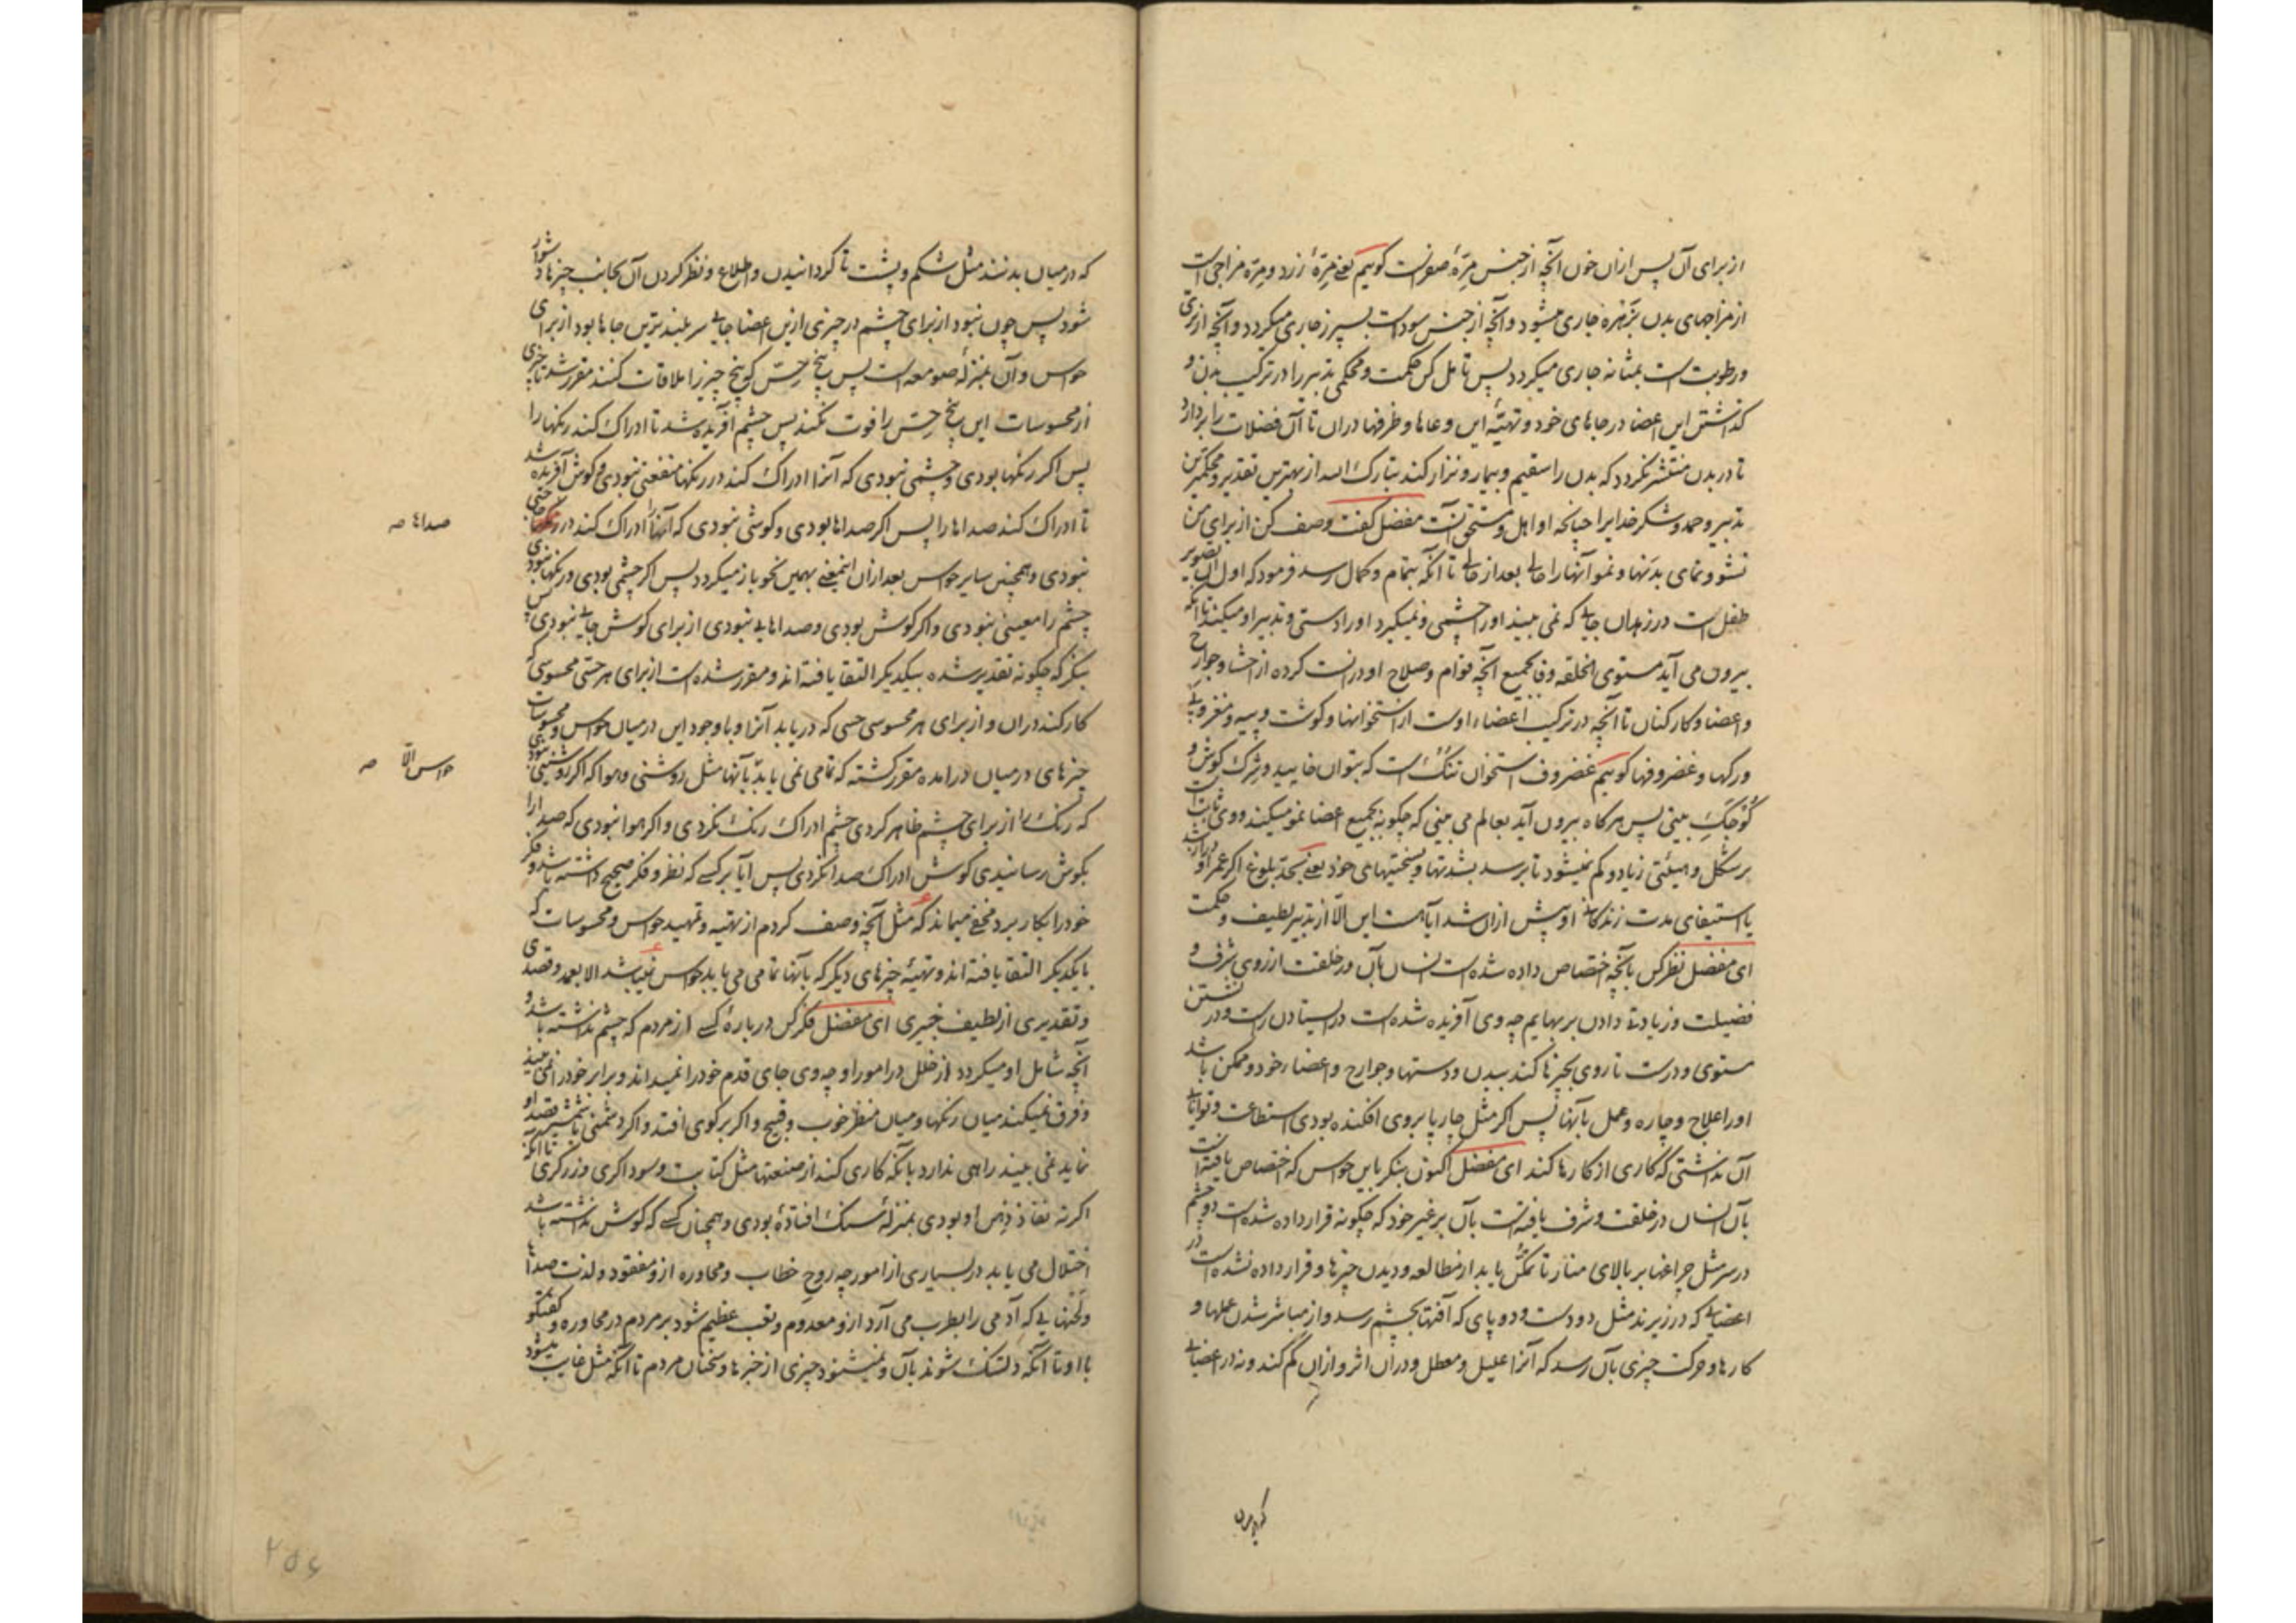 از برای آن پس ازان خون آنچه از جنس مِرّهٔ صفراست کوییم یعنی مِرّهٔ زرد و مِرّه مزاجی است
از مزاجهای بدن بزَهره جاری میشود و آنچه از جنس سود است بسپرز جاری میکردد و آنچه از تری
و رطوبت است بمثانه جاری میکردد پس تامل کن حکمت و محکمی تدبیر را در ترکیب بدن و
کذاشتن این اعضا در جاهای خود و تهیّهٔ این وعاها و ظرفها دران تا آن فضلات را بردارد
تا در بدن منتشر نکردد که بدن را سقیم و بیمار و نزار کند تبارک الله از بهترین تقدیر و محکمترین
تدبیر و حمد و شکر خدایرا چنانچه او اهل و مستحق آنست مفضل کفت وصف کن از برای من
نشو و نمای بدنها و نمو آنها را حالی بعد از حالی تا آنکه بتمام و کمال رسد فرمود که اول آن تصویر
طفل است در زهدان جایی که نمی بیند او را چشمی و نمیکیرد او را دستی و تدبیر او میکند تا آنکه
بیرون می آید مستوی الخلقه وفا بجمیع آنچه قوام و صلاح او درانست کرده از احشا و جوارح
و اعضا و کارکنان تا آنچه در ترکیب اعضاء اوست از استخوانها و کوشت و پیه و مغز و پی
و رکها و غضروفها کوییم غضروف استخوان تنک است که بتوان خایید و نرمک کوش و
کوچک بینی پس هرکاه بیرون آید بعالم می بینی که چکونه بجمیع اعضا نمو میکند و وی ثابت است
بر شکل و هیئتی زیاد و کم نمیشود تا برسد بشدتها و سختیهای خود یعنی بحد بلوغ اکر عمر او دراز باشد
یا استیفای مدت زندکانی او پیش ازان شد آیا هست این الّا از تدبیر لطیف و حکمت
ای مفضل نظر کن بآنچه اختصاص داده شده است انسان بآن در خلقت از روی شرف و
فضیلت و زیادتی دادن بر بهایم چه وی آفریده شده است در ایستادن راست و در نشستن
مستوی و درست تا روی بچیزها کند بیدن و دستها و جوارح و اعضاء خود و ممکن باشد
او را علاج و چاره و عمل بآنها پس اکر مثل چارپا بروی افکنده بودی استطاعت و توانایی
آن نداشتی که کاری از کارها کند ای مفضل اکنون بنکر باین حواس که اختصاص یافته است
بآن انسان در خلقت و شرف یافته است بآن بر غیر خود که چکونه قرار داده شده است دو چشم
در سر مثل چراغها بر بالای منار تا تمکّن یابد از مطالعه و دیدن چیزها و قرار داده نشده است در
اعضایی که در زیرند مثل دو دست و دو پای که آفتها بچشم رسد و از مباشر شدن عملها و
کارها و حرکت چیزی بآن رسد که آنرا علیل و معطل و دران اثر و ازان کم کند و نه در اعضایی
که درمیان
که درمیان بدنند مثل شکم و پشت تا کردانیدن و اطلاع و نظر کردن آن بجانب چیزها دشوار
شود پس چون نبود از برای چشم در چیزی ازین اعضا جایی سر بلندترین جاها بود از برای
حواس و آن بمنزله صومعه است پس پنج حسّ کو پنج چیز را ملاقات کنند مقرر شد تا چیزی
از محسوسات این پنج حسّ را فوت نکند پس چشم آفریده شد تا ادراک کند رنکها را
پس اکر رنکها بودی و چشمی نبودی که آنرا ادراک کند در رنکها منفعتی نبودی و کوش آفریده شد
تا ادراک کند صداها را پس اکر صداها بودی و کوشی نبودی که آنها را ادراک کند در حاجتی
صداها صه
نبودی و همچنین سایر حواس بعد ازان اینمعنی بهمین نحو باز میکردد پس اکر چشمی بودی و رنکها نبودی
چشم را معینی نبودی و اکر کوش بودی و صداها یی نبودی از برای کوش جایی نبودی پس
بنکر که چکونه تقدیر شده بیکدیکر التقا یافته اند و مقرر شده است از برای هر حسّی محسوسی که
کار کند دران و از برای هر محسوسی حسی که دریابد آنرا و با وجود این درمیان حواس و محسوسات
چیزهای درمیان درآمده مقرر کشته که تمامی نمی یابد بآنها مثل روشنی و هوا که اکر روشنی نبودی
حواس الّا صه
که رنک را از برای چشم ظاهر کردی چشم ادراک رنک نکردی و اکر هوا نبودی که صدا را
بکوش رسانیدی کوش ادراک صدا نکردی پس آیا بر کسی که نظر و فکر صحیح داشته باشد و فکر
خود را بکار برد مخفی میماند که مثل آنچه وصف کردم از تهیّه و تمهید حواس و محسوسات که
بایکدیکر التقا یافته اند و تهیّهٔ چیزهای دیکر که بآنها تمامی می یابد حواس نمیباشد الا بعمد و قصدی
و تقدیری از لطیف خبیری ای مفضل فکر کن درباره کسی از مردم که چشم نداشته باشد و
آنچه شامل او میکردد از خلل در امور او چه وی جای قدم خود را نمیداند و برابر خود را نمی بیند
و فرق نمیکند میان رنکها و میان منظر خوب و قبیح و اکر بر کوی افتد و اکر دشمنی با شمشیر قصد او
نماید نمی بیند راهی ندارد بآنکه کاری کند از صنعتها مثل کتابت و سوداکری و زرکری تا آنکه
اکر نه نفاذ ذهن او بودی بمنزلهٔ سنک افتاده بودی و همچنان کسی که کوش نداشته باشد
اختلال می یابد در بسیاری از امور چه روح خطاب و محاوره ازو مفقود و لذت صداها
و لحنهایی که آدمی را بطرب می آرد ازو معدوم و تعب عظیم شود بر مردم در محاوره و کفتکو
با او تا آنکه دلتنک شوند بآن و نمیشنود چیزی از خبرها و سخنان مردم تا آنکه مثل غایب میشود
۲۵۶